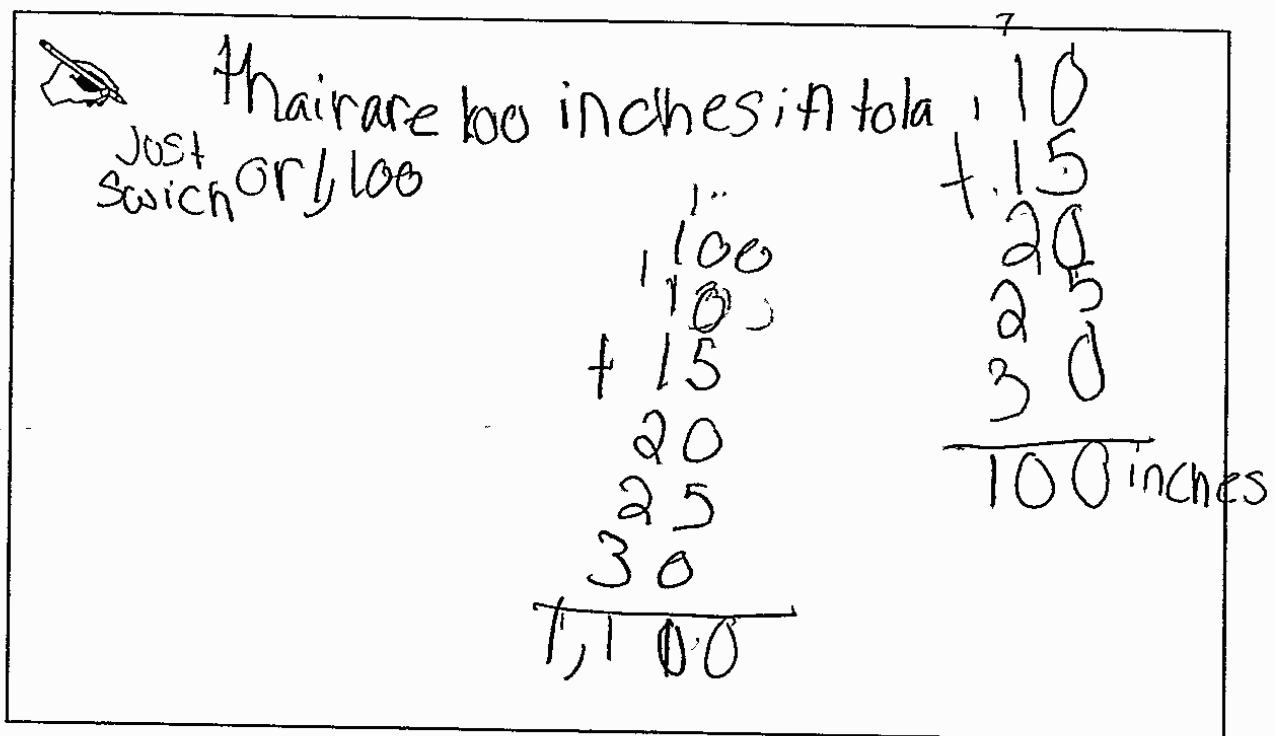 thair are 100 inches in tola
Just
Swich or 1,100
1
100
1 10
+ 15
20
25
30
1,100
10
+ 15
20
25
30
100 inches